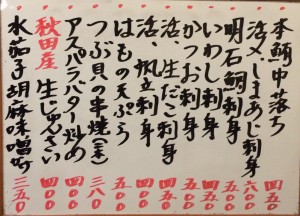 本鮪中落ち 四五〇
活〆しまあじ刺身 五〇〇
明石鯛刺身 六〇〇
いわし刺身 四〇〇
かつお刺身 五〇〇
活、生だこ刺身 四〇〇
活、帆立刺身 四〇〇
はもの天ぷら 五〇〇
つぶ貝の串焼(一本) 三八〇
アスパラバター炒め 四〇〇
秋田産 生じゅんさい 四〇〇
水茄子胡麻味噌 三五〇